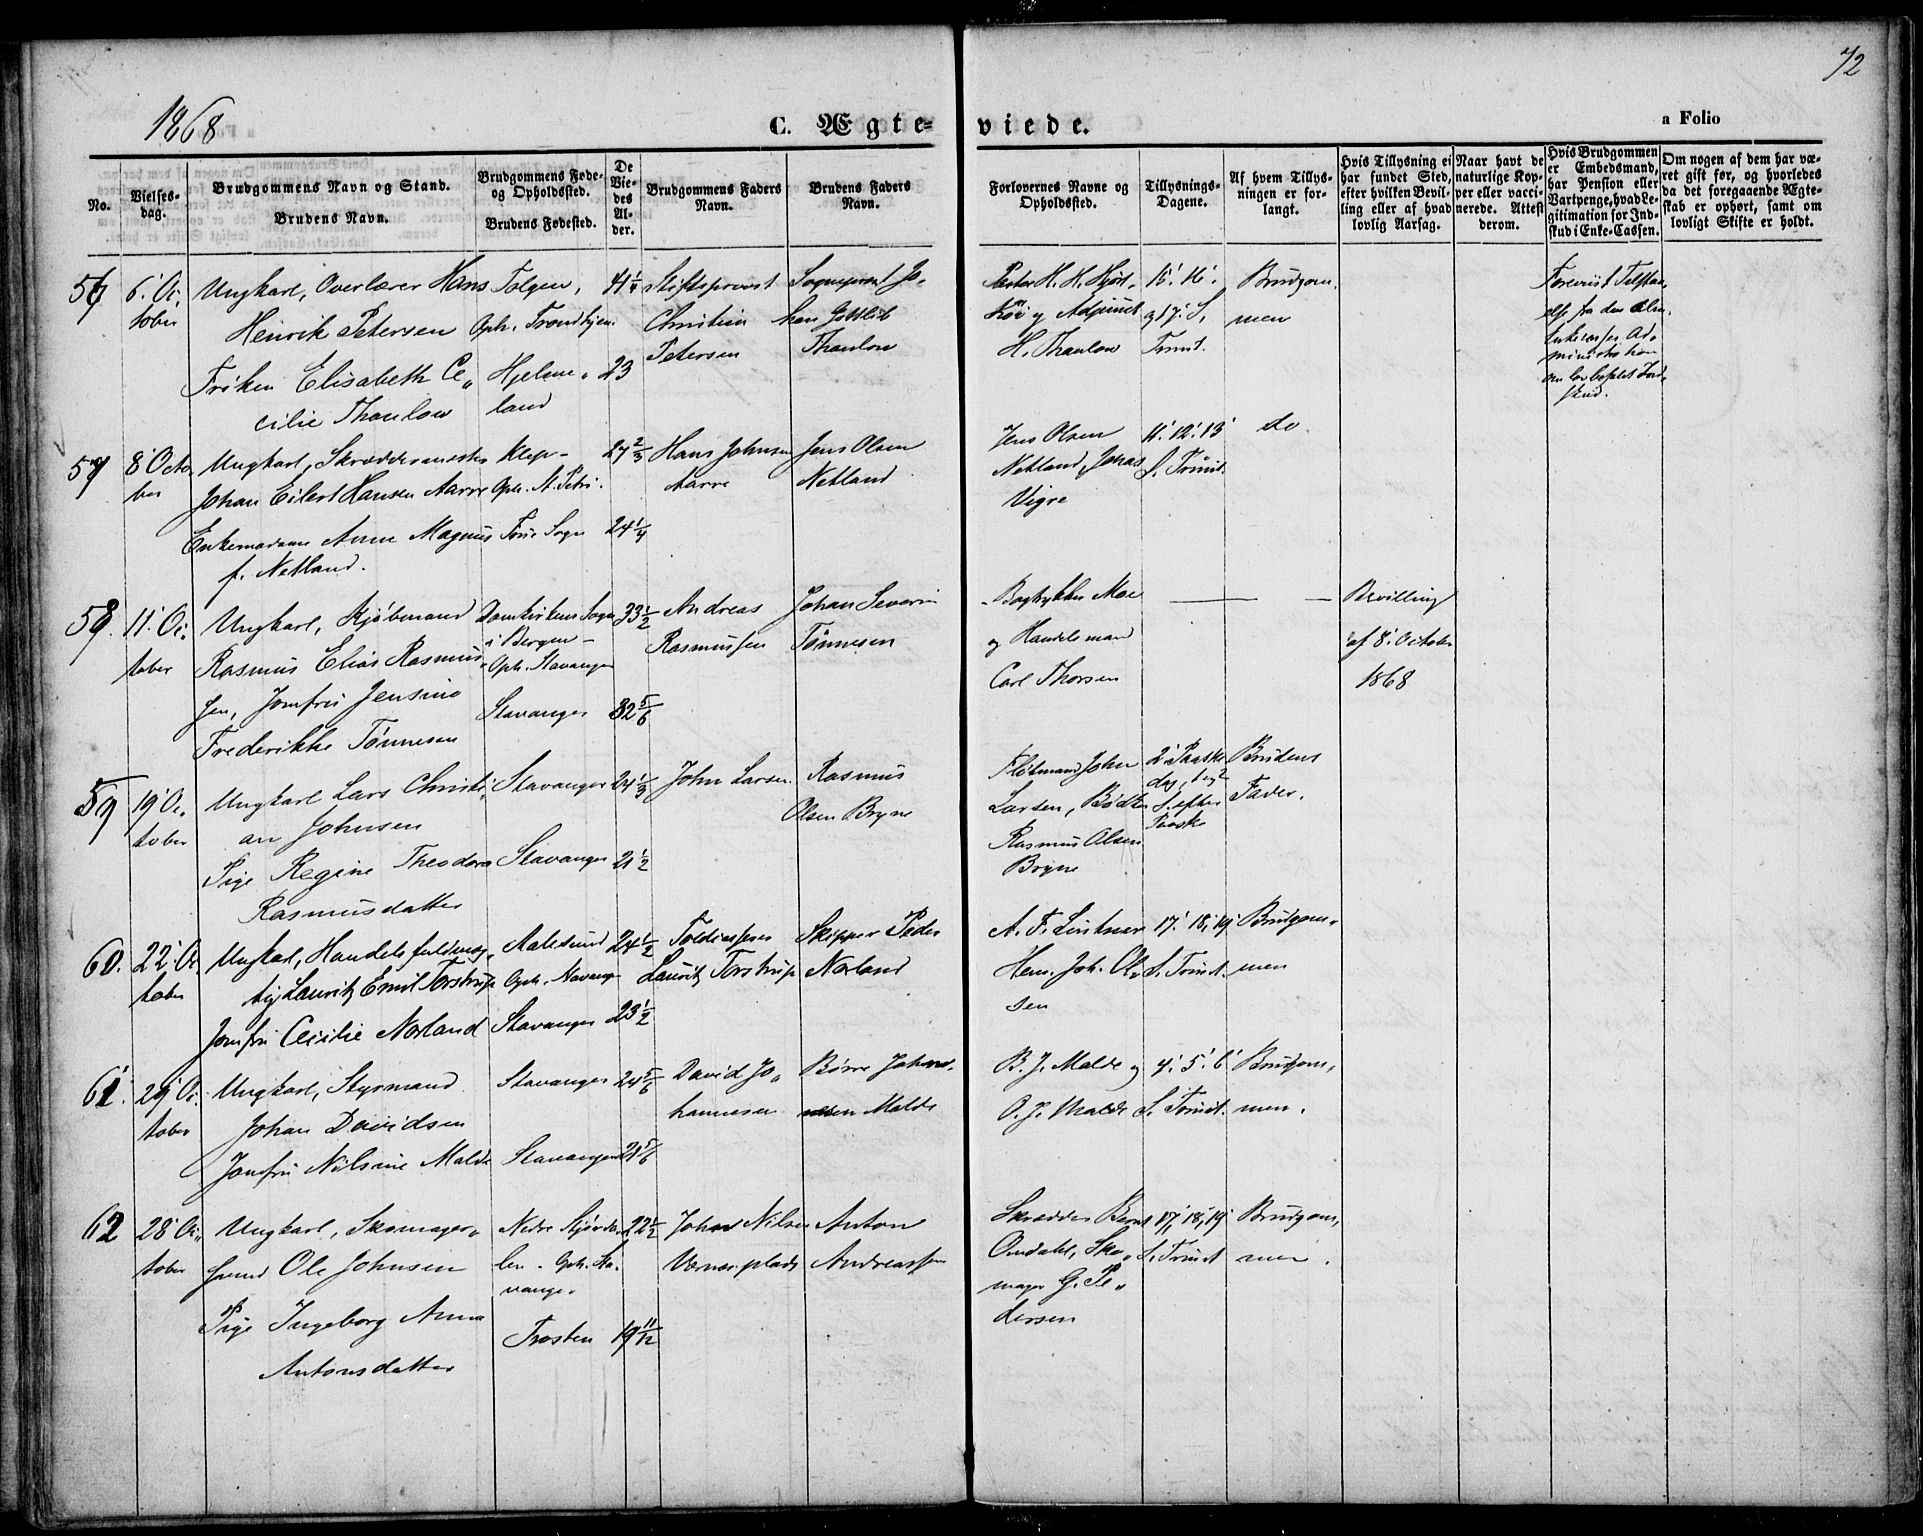 72
1868
C. Ægte-
viede.
a Folio
No.
Vielses-
dag.
Brudgommens Navn og Stand.
Brudens Navn.
Brudgommens Føde-
og Opholdssted.
Brudens Fødested.
De
Vie-
des
Al-
der.
Brudgommens Faders
Navn.
Brudens Faders
Navn.
Forlovernes Navne og
Opholdssted.
Tillysnings-
Dagene.
Af hvem Tillys-
ningen er for-
langt.
Hvis Tillysning ei
har fundet Sted,
efter hvilken Bevil-
ling eller af hvad
lovlig Aarsag.
Naar havt de
naturlige Kop-
per eller vacci-
nerede. Attest
derom.
Hvis Brudgommen
er Embedsmand,
har Pension eller
Vartpenge, hvad Le-
gitimation for Ind-
skud i Enke-Cassen.
Om nogen af dem har væ-
ret gift før, og hvorledes
da det foregaaende Ægte-
skab er ophørt, samt om
lovligt Skifte er holdt.
56
6. Oc,
tober
Ungkarl, Overlærer Hans
Henrik Petersen
Frøken Elisabeth Ce„
cilie Thaulow
Tolgen,
Oph. Trondhjem
Hjelme„
land
41 1/4
23
Stiftsprovst
Christian
Petersen
Sogneprest Jo„
han Gottlieb
Thaulow
Pastor H. H.
og Adjunct
H. Thaulow
15. 16.
og 17. S.
Trinit.
Brudgom,
men
Foreviist Tilstaa„
else fra den Alm.
Enkecasses Ad„
ministration
om lovbefalet Ind„
skud.
57
8 Octo
ber
Ungkarl, Skræddermester
Johan Eilert Hansen Aarre
Enkemadame Anne Magnus
f. Netland.
Klep-
Oph. St. Petri.
Sogn
27 2/3
24 1/4
Hans Johnsen
Aarre
Jens Olsen
Netland
Jens Olsen
Netland, Jonas
Vigre
11. 12. 13
S. Trinit.
do
58.
11. Oc„
tober
Ungkarl, Kjøbmand
Rasmus Elias Rasmus„
sen, Jomfru Jensine
Frederikke Tønnesen
Domkirkens Sogn
i Bergen -
Oph. Stavanger
Stavanger
33 1/2
32 5/6
Andreas
Rasmussen
Johan Severin
Tønnesen
Bogtrykker Moe
og Handelsmand
Carl Thorsen
Bevilling
af 8. October
1868
59
19 Oc„
tober
Ungkarl Lars Christi„
an Johnsen
Pige Regine Theodora
Rasmusdatter
Stavanger
Stavanger
24 1/3
21 1/2
John Larsen
Rasmus
Olsen Bryne
Flødmand John
Larsen, Bødker
Rasmus Olsen
Bryne
2. Paaske
dag, 1 og 2
S. efter
Paaske
Brudens
Fader.
60.
22. Oc
tober
Ungkarl, Handelsfuldmæg„
tig Lauritz Emil Torstrup
Jomfru Cecilie Norland
Aalesund
Oph. Stavanger
Stavanger
24 1/2
23 1/2
Toldcasserer
Lauritz Torstrup
Skipper Peder
Norland
A. F. Lintner
Hem. Joh. Ol„
sen
17. 18, 19
S. Trinit.
Brudgom„
men
61.
29 Oc.
tober
Ungkarl, Styrmand
Johan Davidsen
Jomfru Nilsine Malde
Stavanger
Stavanger
24 5/6
21 5/6
David Jo„
hannesen
Børre Johan„
nesen Malde
B. J. Malde og
O. J. Malde
4. 5. 6
S. Trinit.
Brudgom„
men.
62
28 Oc„
tober
Ungkarl, Skomager„
svend Ole Johnsen
Pige Ingeborg Anna
Antonsdatter
Nedre Stjørda„
len - Oph. Sta„
vanger
Trosten
22 1/2
19 11/12
John Nilsen
Værnesplads
Anton
Andreassen
Skrædder Bernt
Omdahl, Sko„
mager G. Pe„
dersen
17, 18, 19
S. Trinit
Brudgom„
men.